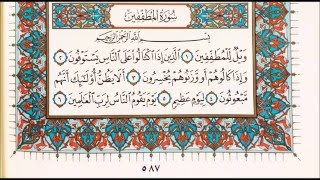 سُورَةُ المُطَفِّفِينَ
بِسْمِ اللَّهِ الرَّحْمَٰنِ الرَّحِيمِ
وَيْلٌ لِّلْمُطَفِّفِينَ ١ الَّذِينَ إِذَا اكْتَالُوا عَلَى النَّاسِ يَسْتَوْفُونَ ٢
وَإِذَا كَالُوهُمْ أَو وَّزَنُوهُمْ يُخْسِرُونَ ٣ أَلَا يَظُنُّ أُولَٰئِكَ أَنَّهُم
مَّبْعُوثُونَ ٤ لِيَوْمٍ عَظِيمٍ ٥ يَوْمَ يَقُومُ النَّاسُ لِرَبِّ الْعَالَمِينَ ٦
٥٨٧